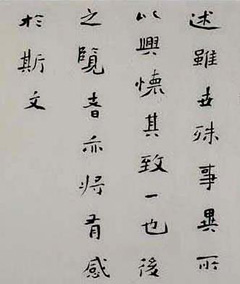 述雖世殊事異所
以興懷其致一也後
之覽者亦將有感
於斯文